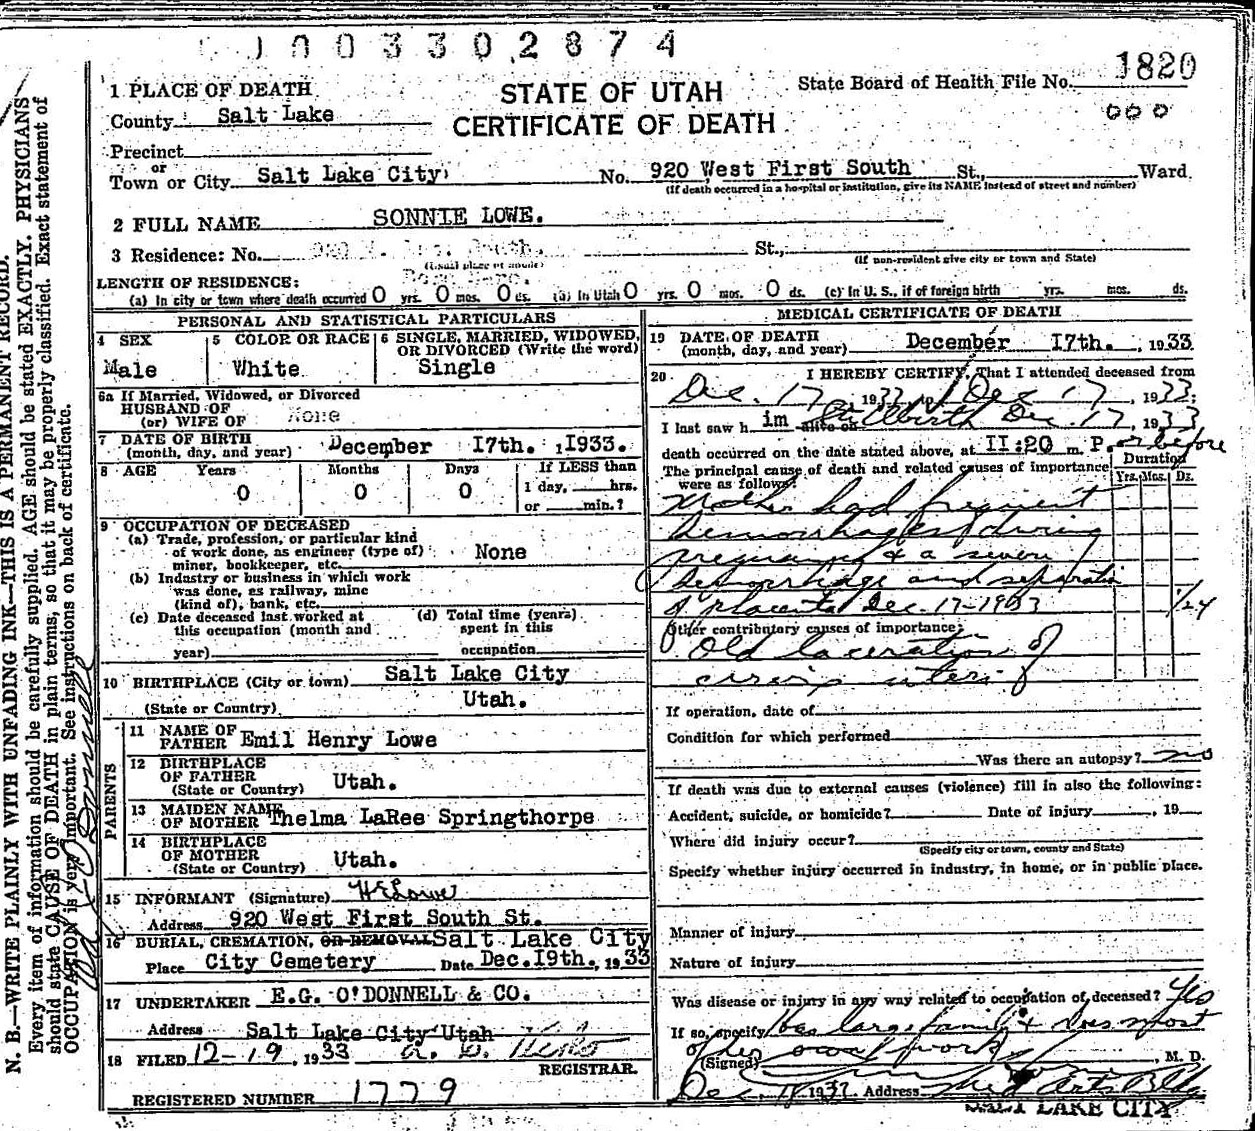 0 0 3 3 0 2 8 7 4
1820
STATE OF UTAH
CERTIFICATE OF DEATH
State Board of Health File No.
000
1 PLACE OF DEATH
County Salt Lake
Precinct
or
Town or City Salt Lake City No. 920 West First South St., Ward
(If death occurred in a hospital or institution, give its NAME instead of street and number)
2 FULL NAME SONNIE LOWE.
3 Residence: No. St.,
(Usual place of abode) (If non-resident give city or town and State)
LENGTH OF RESIDENCE:
(a) In city or town where death occurred 0 yrs. 0 mos. 0 ds. (b) In Utah 0 yrs. 0 mos. 0 ds. (c) In U. S., if of foreign birth yrs. mos. ds.
PERSONAL AND STATISTICAL PARTICULARS
4 SEX Male
5 COLOR OR RACE White
6 SINGLE, MARRIED, WIDOWED, OR DIVORCED (Write the word) Single
6a If Married, Widowed, or Divorced
HUSBAND OF
(or) WIFE OF None
7 DATE OF BIRTH
(month, day, and year) December 17th. 1933.
8 AGE Years 0 Months 0 Days 0 If LESS than
1 day, hrs.
or min.?
9 OCCUPATION OF DECEASED
(a) Trade, profession, or particular kind
of work done, as engineer (type of)
miner, bookkeeper, etc. None
(b) Industry or business in which work
was done, as railway, mine
(kind of), bank, etc.
(c) Date deceased last worked at
this occupation (month and
year)
(d) Total time (years)
spent in this
occupation
10 BIRTHPLACE (City or town) Salt Lake City
(State or Country) Utah.
PARENTS
11 NAME OF
FATHER Emil Henry Lowe
12 BIRTHPLACE
OF FATHER
(State or Country) Utah.
13 MAIDEN NAME
OF MOTHER Thelma LaRee Springthorpe
14 BIRTHPLACE
OF MOTHER
(State or Country) Utah.
15 INFORMANT (Signature) H E Lowe
Address 920 West First South St.
16 BURIAL, CREMATION, OR REMOVAL Salt Lake City
Place City Cemetery Date Dec. 19th., 1933
17 UNDERTAKER E.G. O'DONNELL & CO.
Address Salt Lake City Utah
18 FILED 12-19, 1933
REGISTRAR.
REGISTERED NUMBER 1779
MEDICAL CERTIFICATE OF DEATH
19 DATE OF DEATH
(month, day, and year) December 17th. , 1933
20 I HEREBY CERTIFY, That I attended deceased from
Dec. 17 , 1933, to Dec 17 , 1933;
I last saw him alive on Stillbirth Dec. 17, 1933
death occurred on the date stated above, at 11:20 m. P. or before
The principal cause of death and related causes of importance
were as follows:
Duration
Yrs. Mos. Ds.
Mother had frequent
hemorrhages during
pregnancy & a severe
hemorrhage and separation
of placenta Dec. 17-1933
Other contributory causes of importance:
Old laceration of
cervix uteri
If operation, date of
Condition for which performed
Was there an autopsy? no
If death was due to external causes (violence) fill in also the following:
Accident, suicide, or homicide? Date of injury , 19
Where did injury occur?
(Specify city or town, county and State)
Specify whether injury occurred in industry, in home, or in public place.
Manner of injury
Nature of injury
Was disease or injury in any way related to occupation of deceased? Yes
If so, specify Has large family & does most
of her own work
(Signed) , M. D.
Dec. 1933 Address Med Arts Bldg
SALT LAKE CITY
N. B.—WRITE PLAINLY WITH UNFADING INK—THIS IS A PERMANENT RECORD.
Every item of information should be carefully supplied. AGE should be stated EXACTLY. PHYSICIANS
should state CAUSE OF DEATH in plain terms, so that it may be properly classified. Exact statement of
OCCUPATION is very important. See instructions on back of certificate.